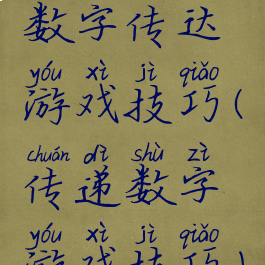 数字传达
yóu xì jì qiǎo
游戏技巧(
chuán dì shù zì
传递数字
yóu xì jì qiǎo
游戏技巧)